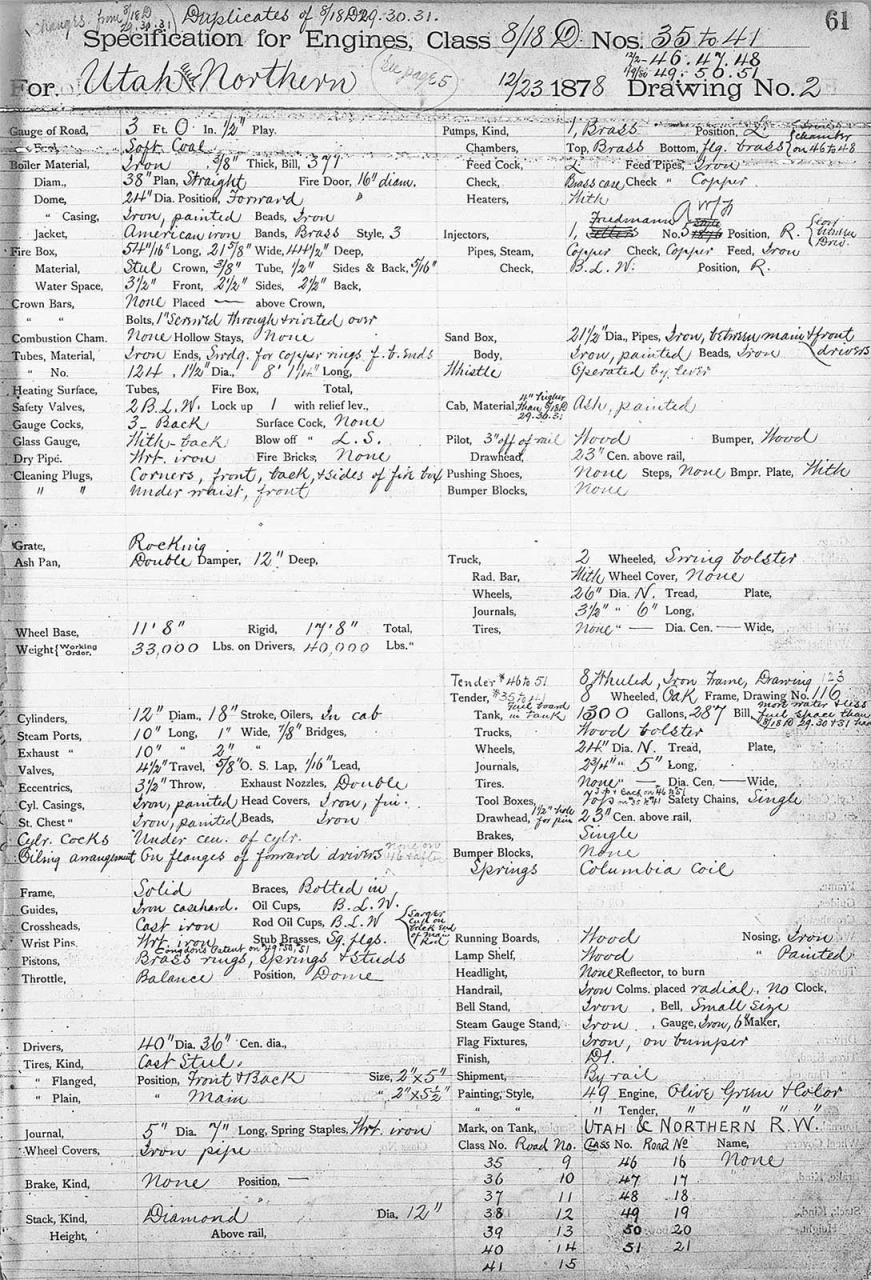 Changes from 8/18 D 29.30.31
Duplicates of 8/18 D 29.30.31.
61
Specification for Engines, Class 8/18 D Nos. 35 to 41
46.47.48
49.50.51
For Utah and Northern
See page 5
12/23 1878 Drawing No. 2
Gauge of Road, 3 Ft. 0 In. 1/2" Play.
Fuel, Soft Coal
Boiler Material, Iron 3/8" Thick, Bill, 371
Diam., 38" Plan, Straight Fire Door, 16" diam.
Dome, 24" Dia. Position, Forward "
" Casing, Iron, painted Beads, Iron
Jacket, American iron Bands, Brass Style, 3
Fire Box, 54 11/16" Long, 21 5/8" Wide, 44 1/2" Deep,
Material, Steel Crown, 3/8" Tube, 1/2" Sides & Back, 5/16"
Water Space, 3 1/2" Front, 2 1/2" Sides, 2 1/2" Back,
Crown Bars, None Placed — above Crown,
" " Bolts, 1" Screwed through & riveted over
Combustion Cham. None Hollow Stays, None
Tubes, Material, Iron Ends, Swdg. for copper rings f. b. ends
" No. 124 . 1 1/2" Dia., 8' 1 1/4" Long,
Heating Surface, Tubes, Fire Box, Total,
Safety Valves, 2 B.L.W. Lock up 1 with relief lev.,
Gauge Cocks, 3 - Back Surface Cock, None
Glass Gauge, With - back Blow off " L.S.
Dry Pipe. Wrt. iron Fire Bricks, None
Cleaning Plugs, Corners, front, back, & sides of fire box
" " Under waist, front
Grate, Rocking
Ash Pan, Double Damper, 12" Deep,
Wheel Base, 11' 8" Rigid, 17' 8" Total,
Weight { Working Order, 33,000 Lbs. on Drivers, 40,000 Lbs. "
Cylinders, 12" Diam., 18" Stroke, Oilers, In cab
Steam Ports, 10" Long, 1" Wide, 7/8" Bridges,
Exhaust " 10" " 2" "
Valves, 4 1/2" Travel, 5/8" O. S. Lap, 1/16" Lead,
Eccentrics, 3 1/2" Throw, Exhaust Nozzles, Double
Cyl. Casings, Iron, painted Head Covers, Iron, fin.
St. Chest " Iron, painted Beads, Iron
Cylr. Cocks Under cen. of cylr.
Oiling arrangement On flanges of forward drivers
Frame, Solid Braces, Bolted in
Guides, Iron casehard. Oil Cups, B.L.W.
Crossheads, Cast iron Rod Oil Cups, B.L.W { Larger cup on back end of main rod
Wrist Pins. Wrt. iron Stub Brasses, Sq. flgs.
Congdons Patent on 49.50.51
Pistons, Brass rings, Springs & Studs
Throttle, Balance Position, Dome
Drivers, 40" Dia. 36" Cen. dia.,
Tires, Kind, Cast Steel.
" Flanged, Position, Front & Back Size, 2" x 5"
" Plain, " Main " 2" x 5 1/2"
Journal, 5" Dia. 7" Long, Spring Staples, Wrt. iron
Wheel Covers, Iron pipe
Brake, Kind, None Position, —
Stack, Kind, Diamond Dia. 12"
Height, Above rail,
Pumps, Kind, 1, Brass Position, L.
Chambers, Top, Brass Bottom, flg. brass chamber on 46 to 48
Feed Cock, L Feed Pipes, Iron
Check, Brass case Check " Copper
Heaters, With
Injectors, 1, Friedmann No. 5 Position, R.
Pipes, Steam, Copper Check, Copper Feed, Iron
Check, B.L.W. Position, R.
Sand Box, 21 1/2" Dia., Pipes, Iron, between main & front drivers
Body, Iron, painted Beads, Iron
Whistle Operated by lever
Cab, Material, 4" higher than 8/18 D 29.30.31 Ash, painted
Pilot, 3" off of rail Wood Bumper, Wood
Drawhead, 23" Cen. above rail,
Pushing Shoes, None Steps, None Bmpr. Plate, With
Bumper Blocks, None
Truck, 2 Wheeled, Swing bolster
Rad. Bar, With Wheel Cover, None
Wheels, 26" Dia. N. Tread, Plate,
Journals, 3 1/2" " 6" Long,
Tires, None " — Dia. Cen. — Wide,
Tender #46 to 51 8 Wheeled, Iron Frame, Drawing 123
Tender, #35 to 41 8 Wheeled, Oak Frame, Drawing No. 116
Tank, fuel board in tank 1300 Gallons, 287 Bill, more water & less fuel space than 8/18 D 29.30 & 31 had
Trucks, Wood bolster
Wheels, 24" Dia. N. Tread, Plate, "
Journals, 2 3/4" " 5" Long,
Tires. None " — Dia. Cen. — Wide,
Tool Boxes, Safety Chains, Single
Drawhead, 1 1/2" hole for pin 23" Cen. above rail,
Brakes, Single
Bumper Blocks, None
Springs Columbia Coil
Running Boards, Wood Nosing, Iron
Lamp Shelf, Wood " Painted
Headlight, None Reflector, to burn
Handrail, Iron Colms. placed radial. No Clock,
Bell Stand, Iron , Bell, Small size
Steam Gauge Stand, Iron , Gauge, Iron, 6" Maker,
Flag Fixtures, Iron, on bumper
Finish, D1.
Shipment, By rail
Painting, Style, 49 Engine, Olive Green & Color
" " " Tender, " " " "
Mark, on Tank, UTAH & NORTHERN R.W.
Class No. Road No. Class No. Road No Name,
35 9 46 16 None
36 10 47 17
37 11 48 18
38 12 49 19
39 13 50 20
40 14 51 21
41 15